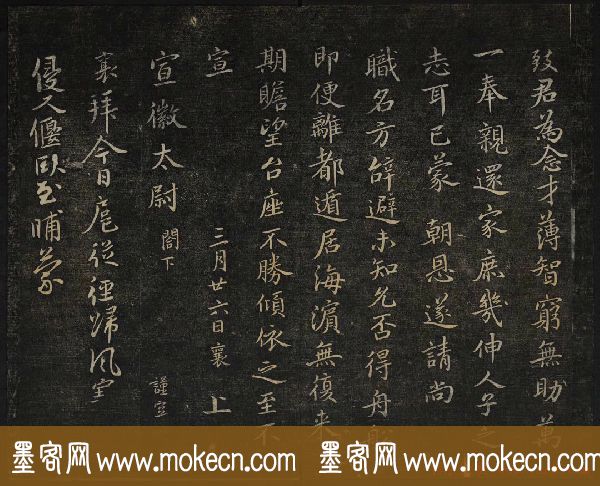 致君為念才薄智窮無助萬
一奉親還家庶幾伸人子之
志耳已蒙 朝恩遂請尚
職名方辞避未知允否得舟
即便離都遁居海濱無復来
期瞻望台座不勝傾依之至不
宣
三月廿六日襄 上
宣徽太尉 閤下
謹空
襄拜今日扈從徑歸風室
侵人偃卧至晡蒙
墨客网 www.mokecn.com 墨客网 www.mokecn.com